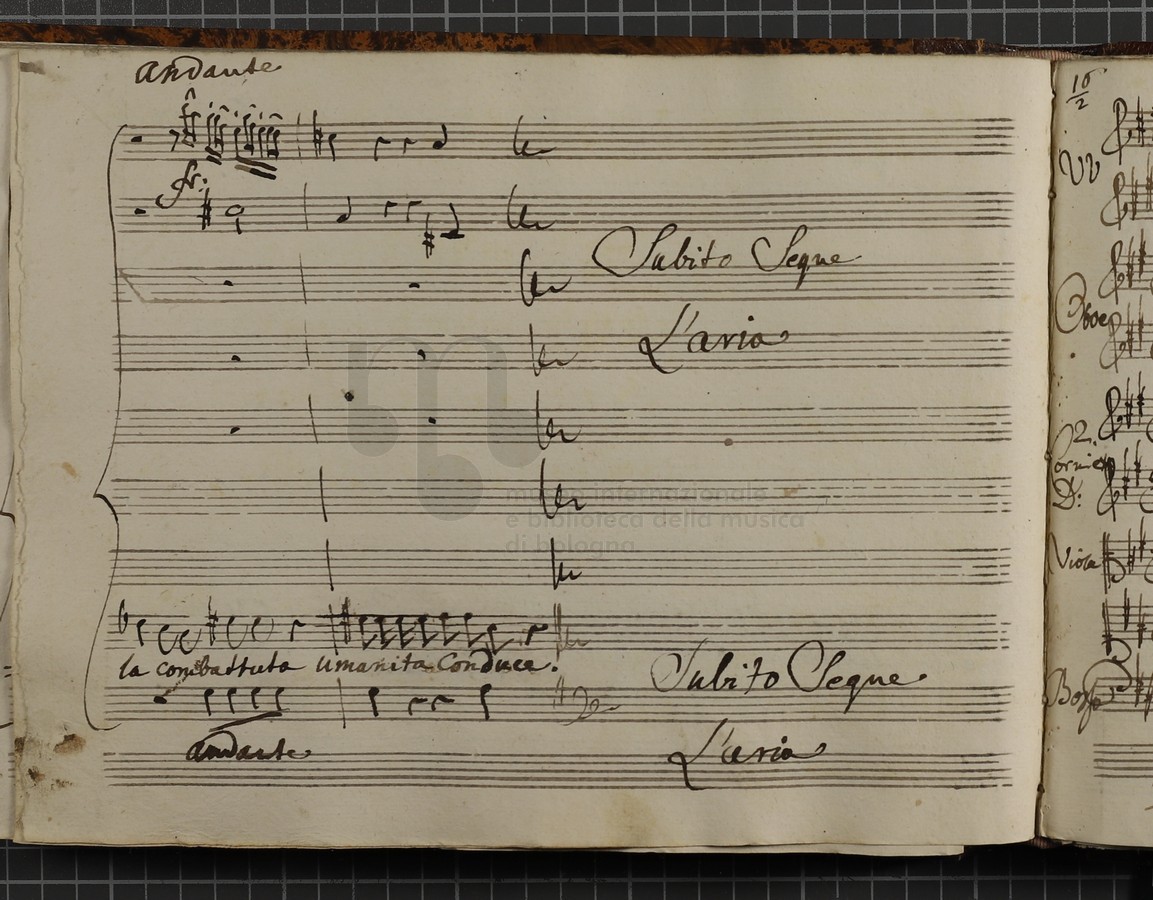 andante
fr:
Subito Segue
L'aria
museo internazionale
e biblioteca della musica
di bologna
la combattuta umanita Conduce.
Subito Segue
andante
L'aria
10
2
VV
Oboe
2.
Cornie
D:
Viola
Basso